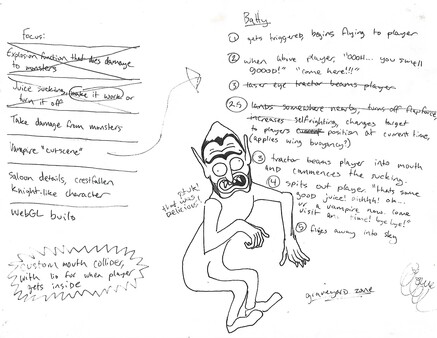 Focus:
Explosion function that does damage
to monsters
Juice sucking, make it work or
turn it off
Take damage from monsters
Vampire "cutscene"
Saloon details, crestfallen
Knight-like character
WebGL build
custom mouth collider,
with lo for when player
gets inside
Batty
① gets triggered, begins flying to player
② when above player, "OOOH... you smell
GOOOD!" "come here!!!"
③ laser eye tractor beams player
2.5 lands somewhere nearby, turns off flapforce,
increases selfrighting, changes target
to players current position at current time,
(applies wing buoyancy?)
③ tractor beams player into mouth
and commences the sucking.
④ spits out player "thats some
good juice! ahhhh! oh...
ur a vampire now. come
visit an. time! bye bye!"
⑤ flies away into sky
that was
delicious!
graveyard zone